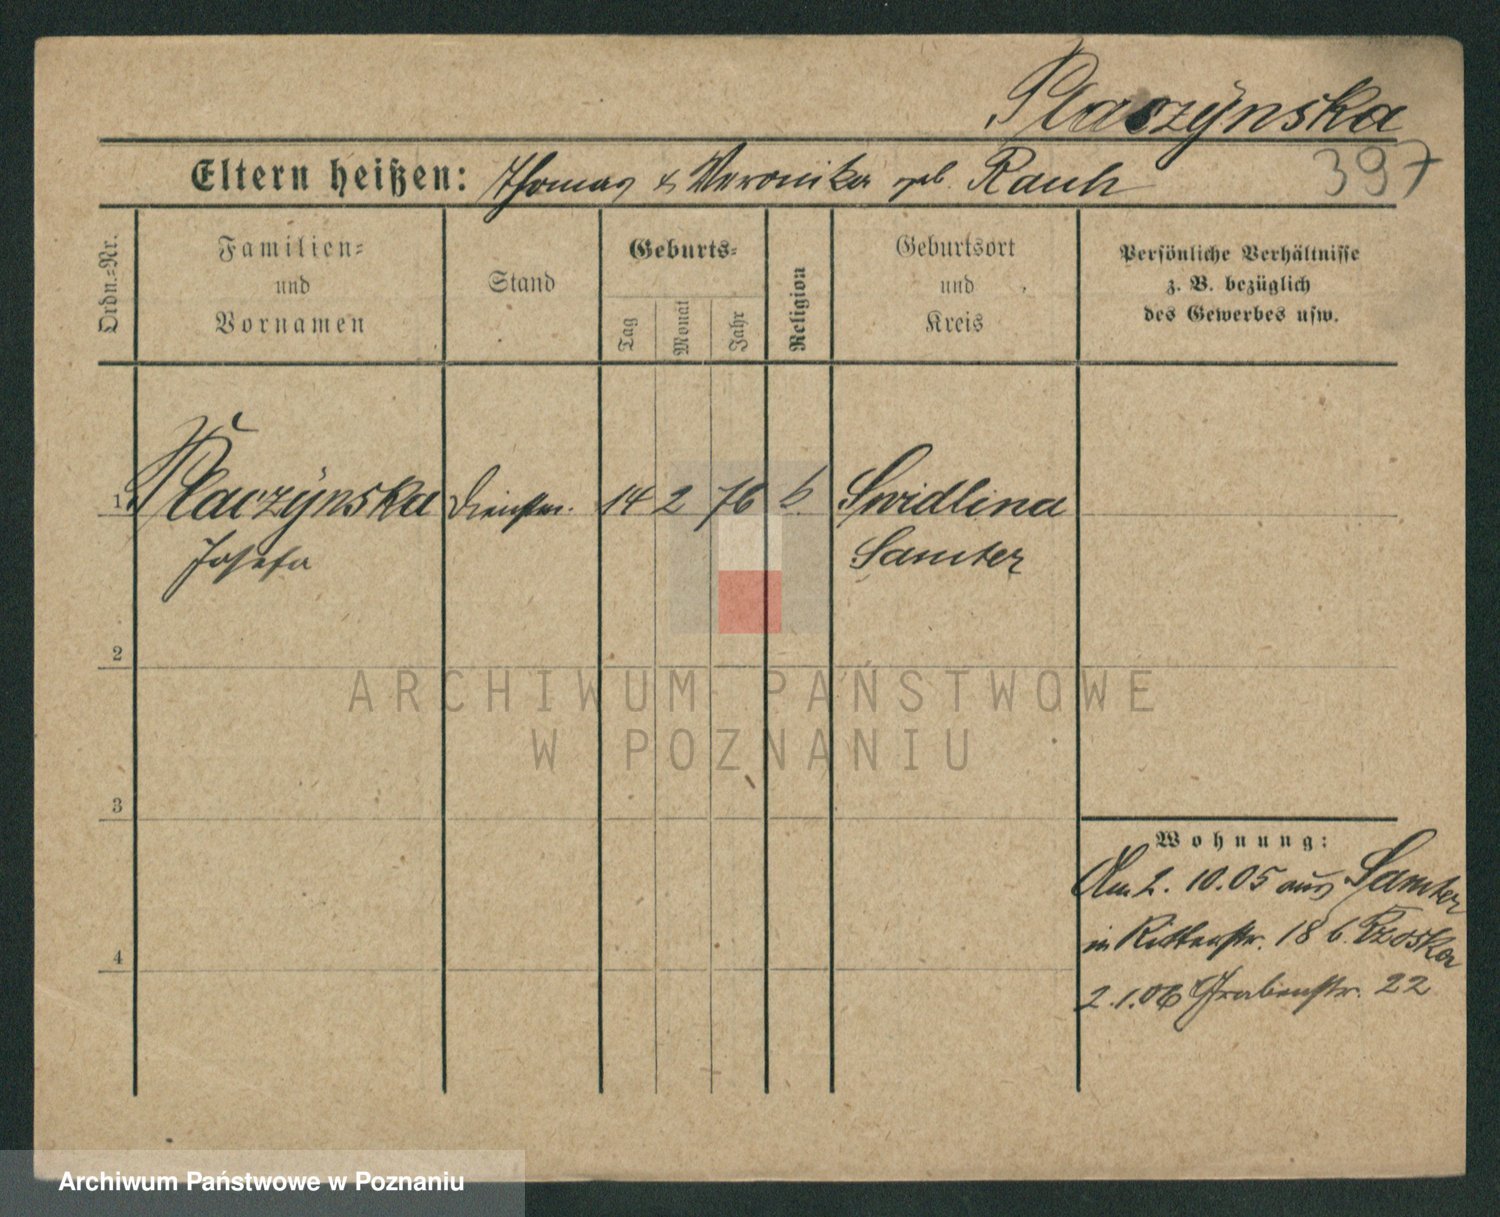 Placzynska
397
Eltern heißen: Thomas & Veronika geb. Rauh
Ordn.=Nr.
Familien=
und
Vornamen
Stand
Geburts=
Tag
Monat
Jahr
Religion
Geburtsort
und
Kreis
Persönliche Verhältnisse
z. B. bezüglich
des Gewerbes usw.
1 Placzynska Dienstm. 14 2 76 k. Swidlina
Josefa Samter
2
3
4
Wohnung:
Am 2. 10.05 aus Samter
in Ritterstr. 18 b. Rzoska
2.1.06 Grabenstr. 22
ARCHIWUM PAŃSTWOWE
W POZNANIU
Archiwum Państwowe w Poznaniu